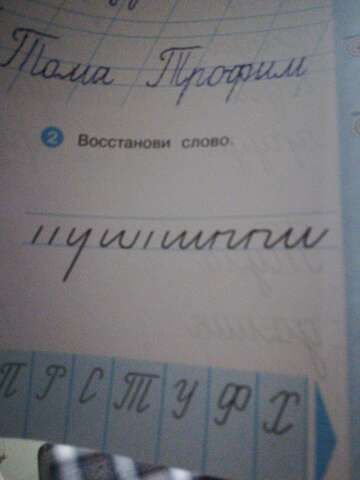 Тома Трофим
2 Восстанови слово.
П Р С Т У Ф Х